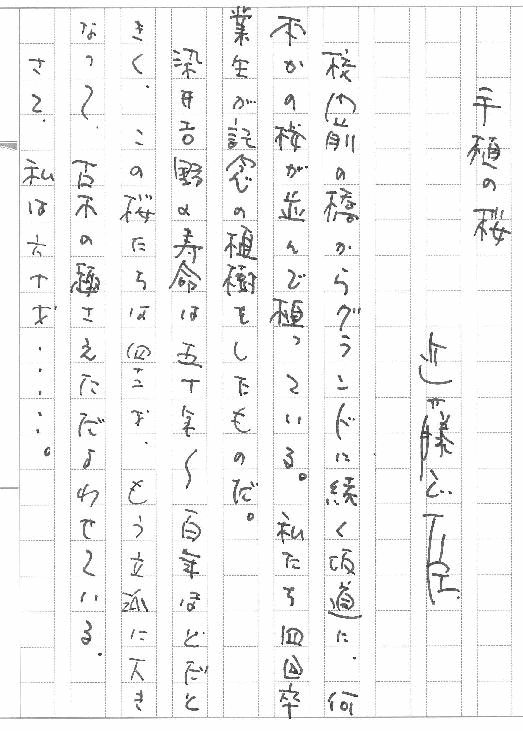 手植の桜
近藤
校門前の橋からグランドに続く坂道に、何
本かの桜が並んで植っている。私たち四回卒
業生が記念の植樹をしたものだ。
染井吉野の寿命は五十年〜百年ほどだと
きく。この桜たちは四十才、もう立派に大き
なって、古木の趣さえただよわせている。
さて、私は六十才・・・・・・。